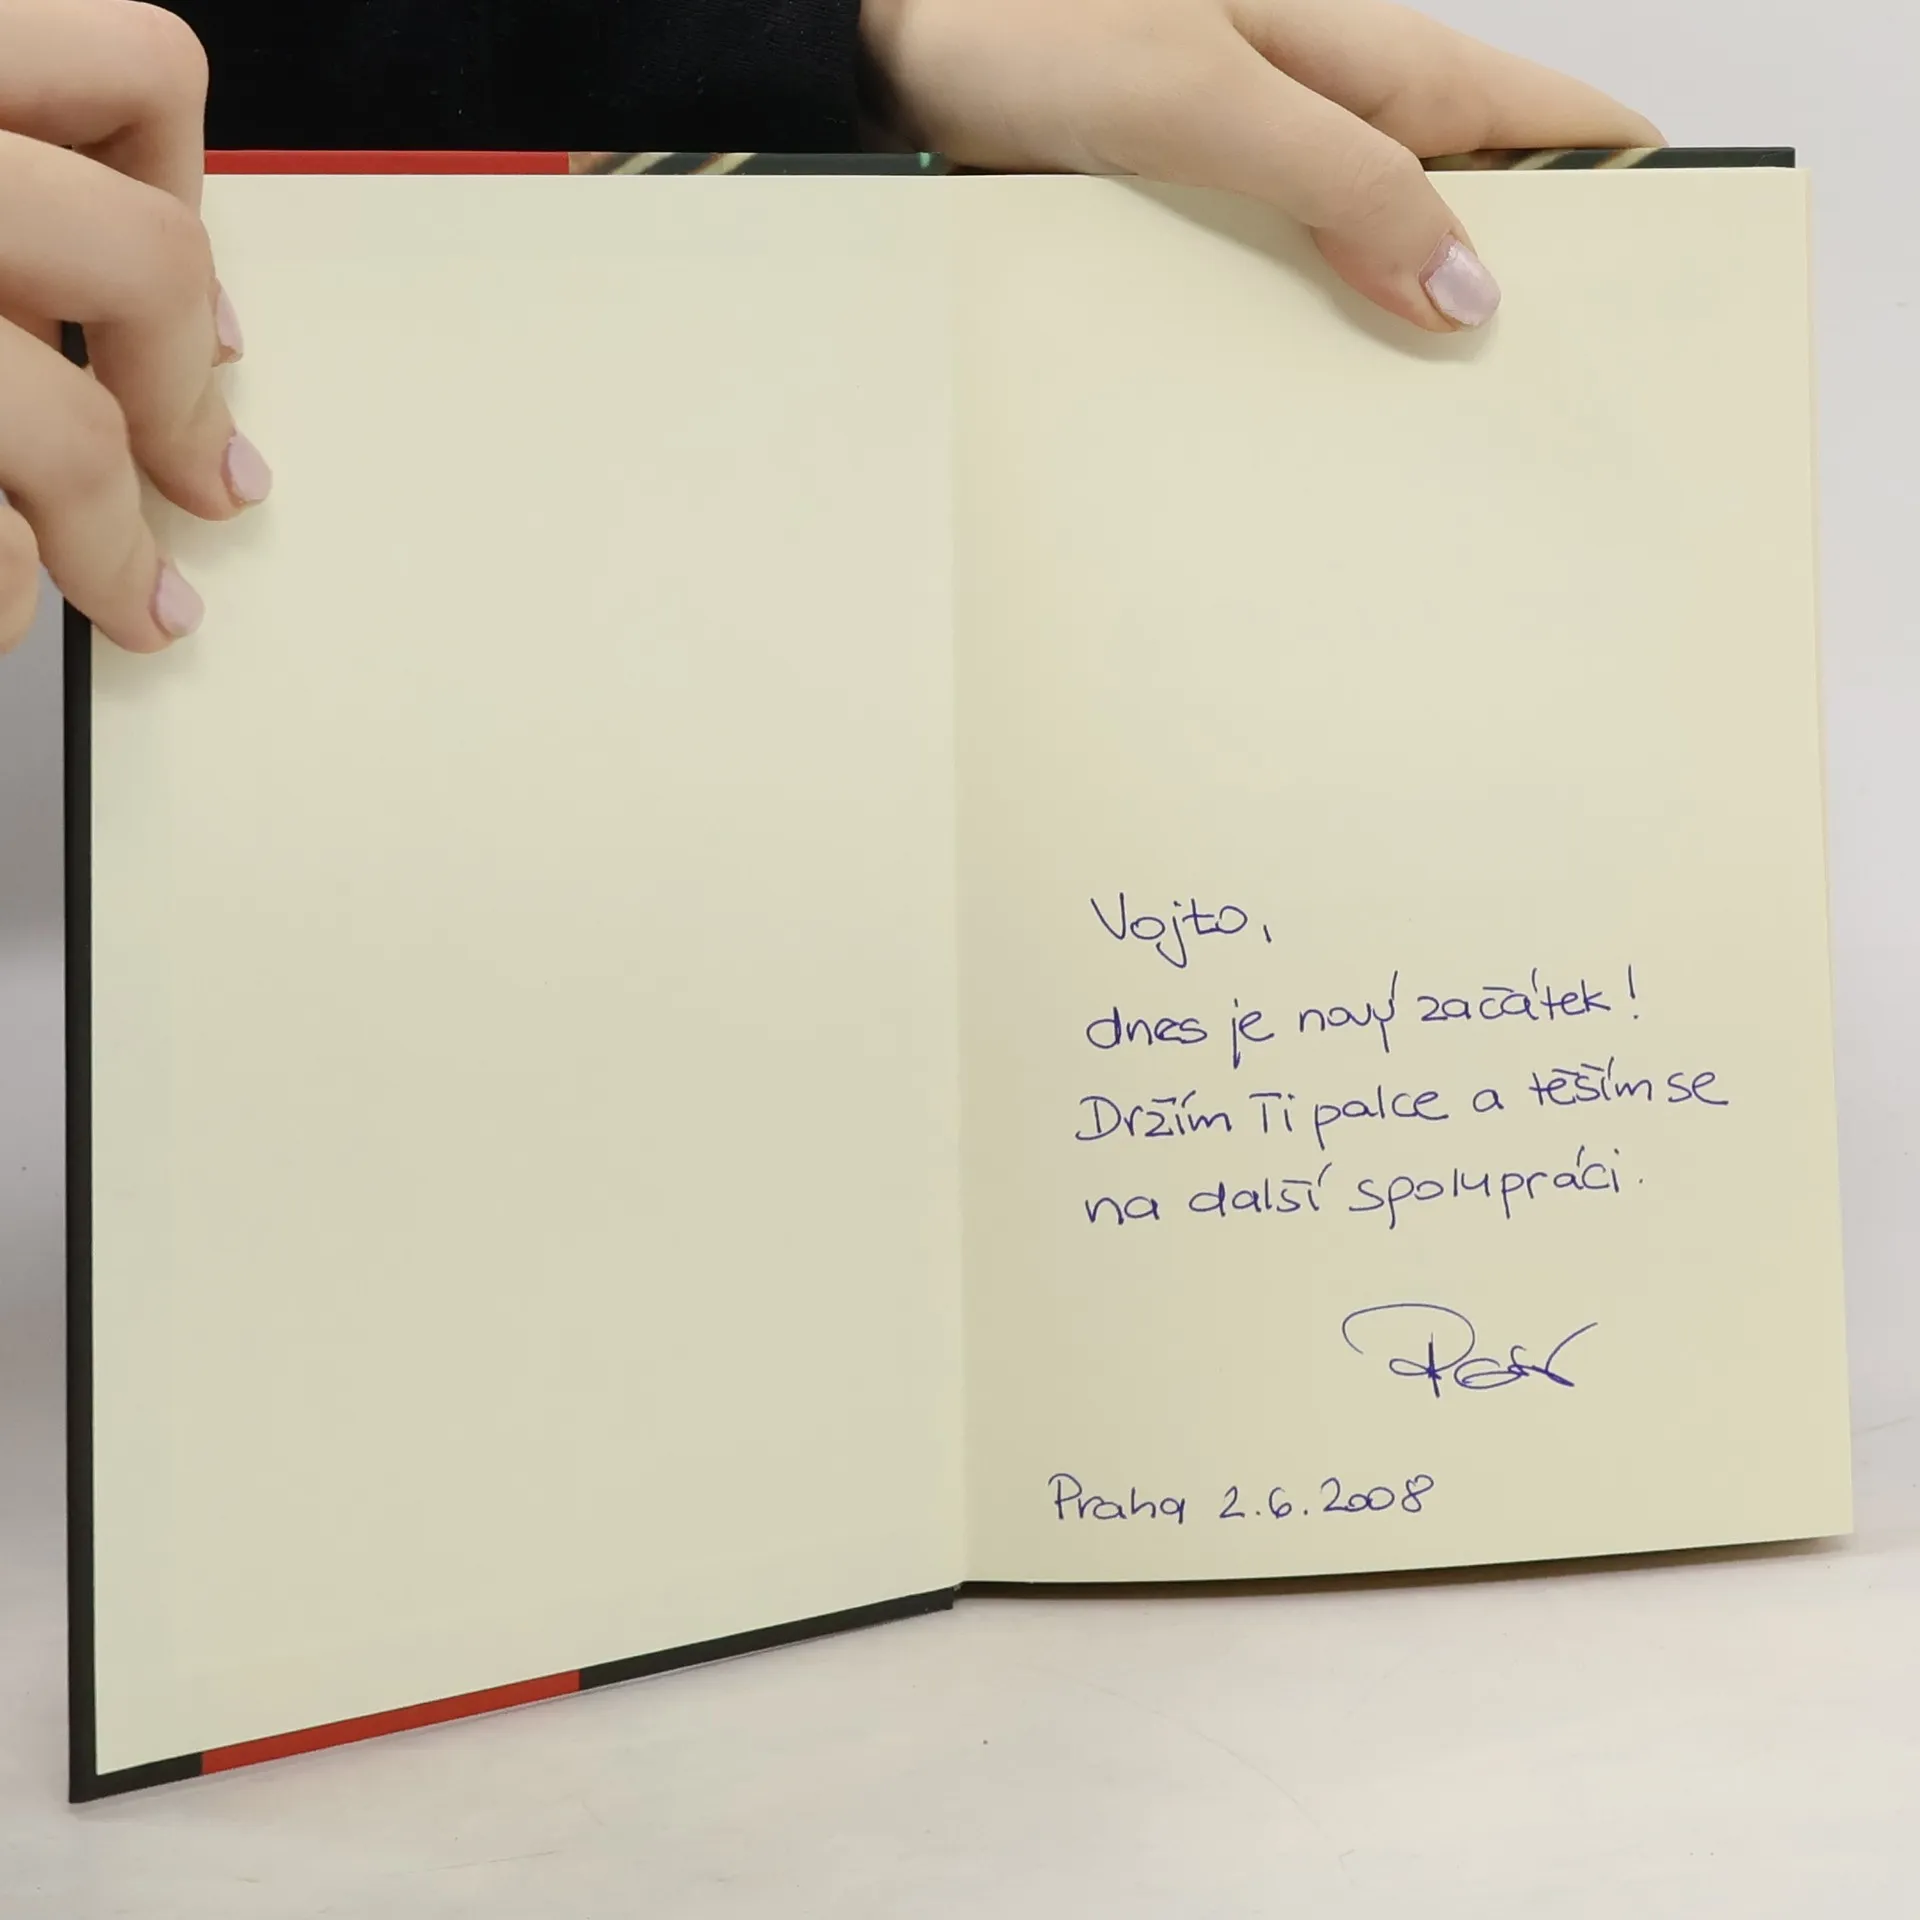 Vojto,
dnes je nový začátek!
Držím Ti palce a těším se
na další spolupráci.
Praha 2.6.2008